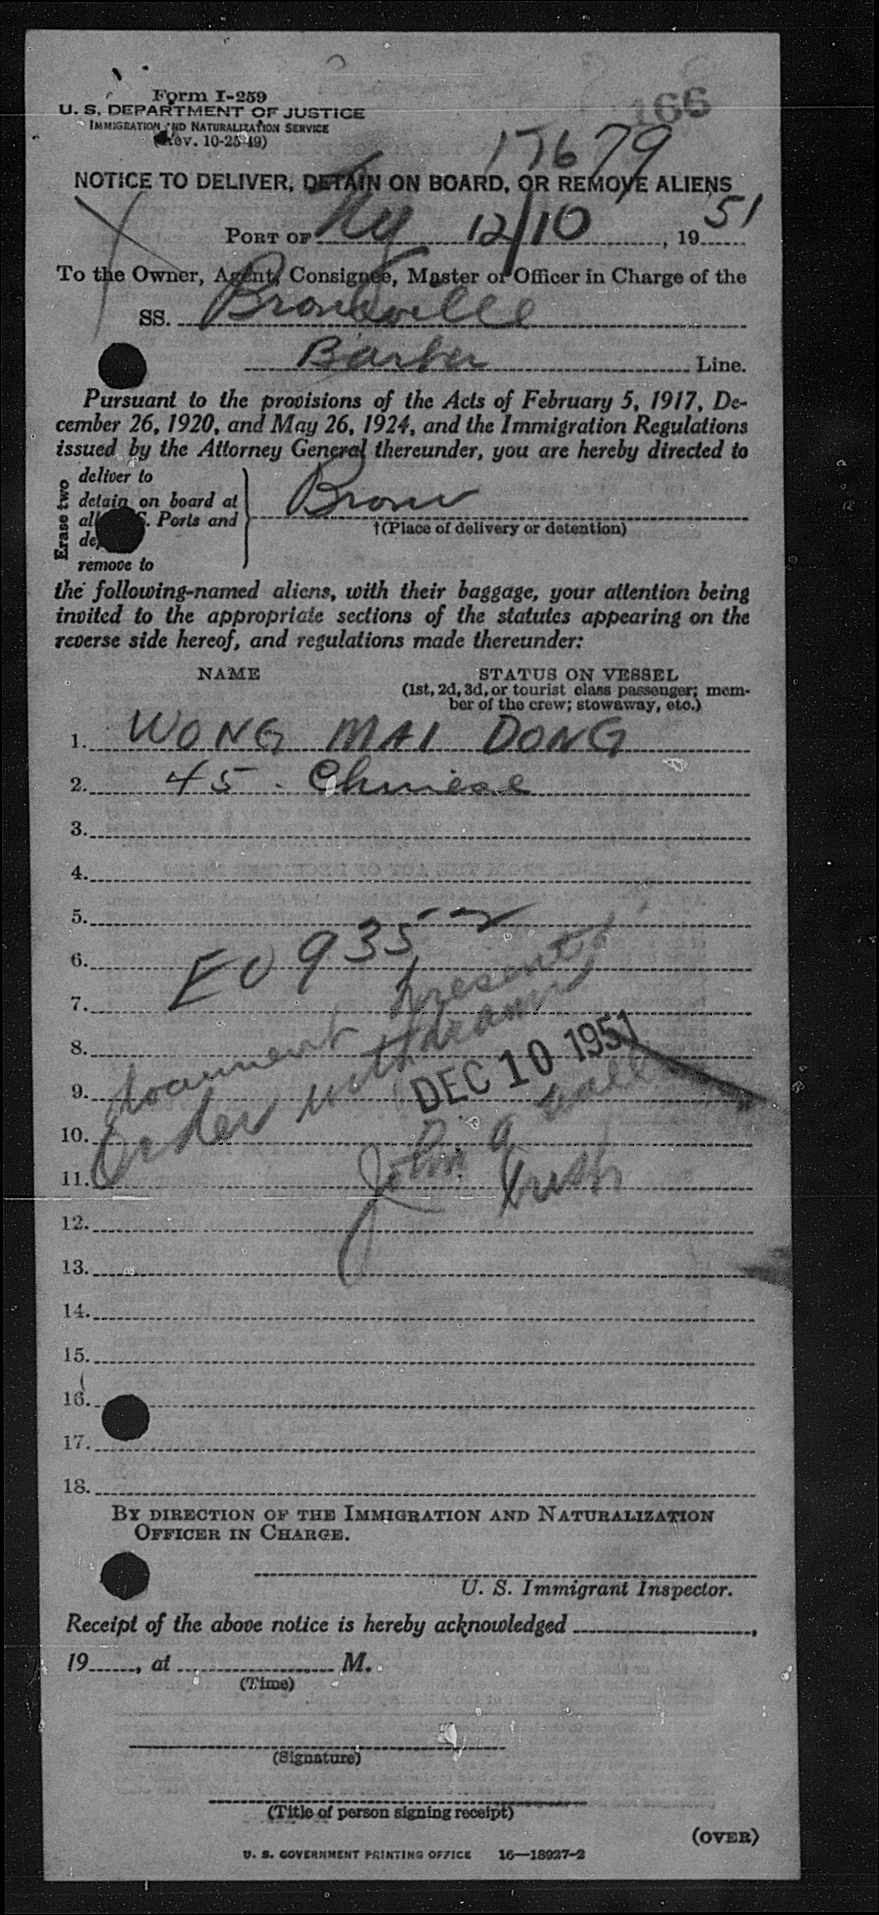 166
Form I-259
U. S. DEPARTMENT OF JUSTICE
IMMIGRATION AND NATURALIZATION SERVICE
(Rev. 10-25-49)
17679
NOTICE TO DELIVER, DETAIN ON BOARD, OR REMOVE ALIENS
PORT OF NY 12/10, 1951
To the Owner, Agent, Consignee, Master or Officer in Charge of the
SS.
Barber Line.
Pursuant to the provisions of the Acts of February 5, 1917, De-
cember 26, 1920, and May 26, 1924, and the Immigration Regulations
issued by the Attorney General thereunder, you are hereby directed to
Erase two
deliver to
detain on board at
all U.S. Ports and
remove to
†(Place of delivery or detention)
the following-named aliens, with their baggage, your attention being
invited to the appropriate sections of the statutes appearing on the
reverse side hereof, and regulations made thereunder:
NAME STATUS ON VESSEL
(1st, 2d, 3d, or tourist class passenger; mem-
ber of the crew; stowaway, etc.)
1. WONG MAI DONG
2. 45 - Chinese
3.
4.
5.
6. 935
7. document presented
8. Order withdrawn
9. DEC 10 1951
10. John a
11.
12.
13.
14.
15.
16.
17.
18.
BY DIRECTION OF THE IMMIGRATION AND NATURALIZATION
OFFICER IN CHARGE.
U. S. Immigrant Inspector.
Receipt of the above notice is hereby acknowledged ,
19 , at M.
(Time)
(Signature)
(Title of person signing receipt)
(OVER)
U. S. GOVERNMENT PRINTING OFFICE 16—18927-2